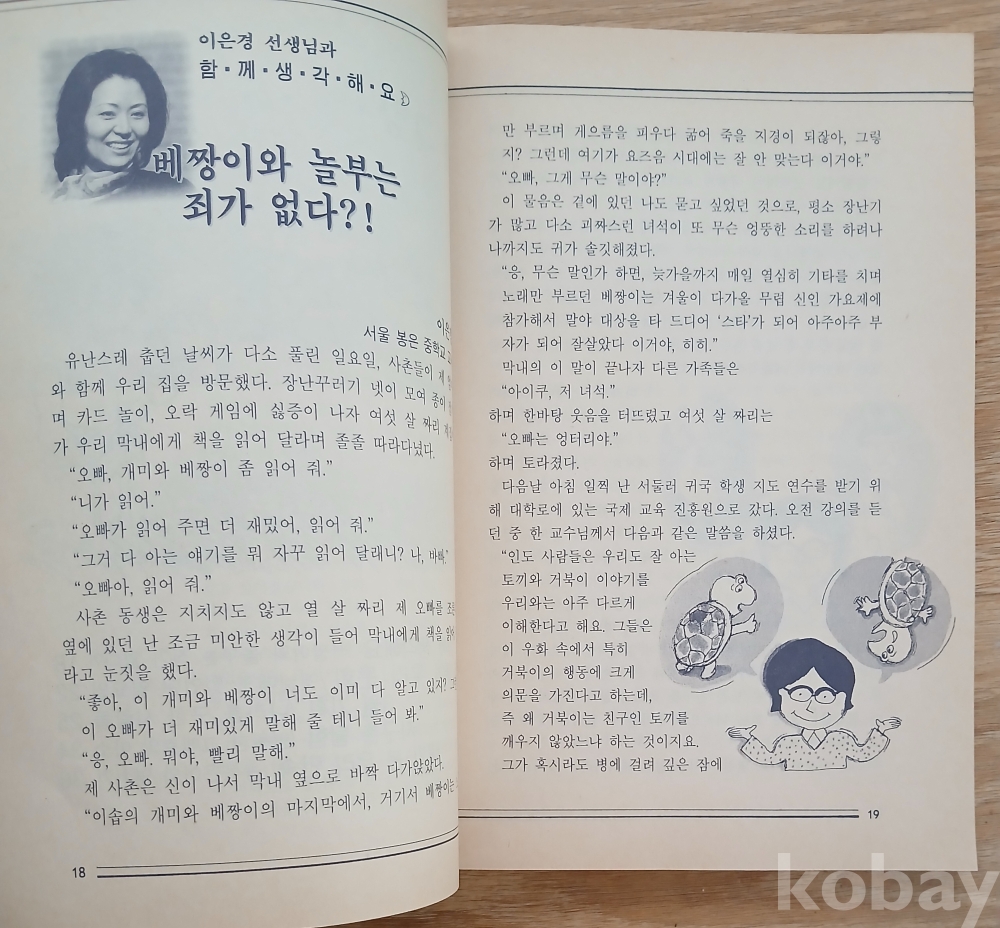 이은경 선생님과
함·께·생·각·해·요
베짱이와 놀부는
죄가 없다?!
서울 봉은 중학교
유난스레 춥던 날씨가 다소 풀린 일요일, 사촌들이 제
와 함께 우리 집을 방문했다. 장난꾸러기 넷이 모여 종이
며 카드 놀이, 오락 게임에 싫증이 나자 여섯 살 짜리
가 우리 막내에게 책을 읽어 달라며 졸졸 따라다녔다.
“오빠, 개미와 베짱이 좀 읽어 줘.”
“니가 읽어.”
“오빠가 읽어 주면 더 재밌어, 읽어 줘.”
“그거 다 아는 얘기를 뭐 자꾸 읽어 달래니? 나, 바빠.”
“오빠아, 읽어 줘.”
사촌 동생은 지치지도 않고 열 살 짜리 제 오빠를
옆에 있던 난 조금 미안한 생각이 들어 막내에게 책을
라고 눈짓을 했다.
“좋아, 이 개미와 베짱이 너도 이미 다 알고 있지?
이 오빠가 더 재미있게 말해 줄 테니 들어 봐.”
“응, 오빠. 뭐야, 빨리 말해.”
제 사촌은 신이 나서 막내 옆으로 바짝 다가앉았다.
“이솝의 개미와 베짱이의 마지막에서, 거기서 베짱이는
18
만 부르며 게으름을 피우다 굶어 죽을 지경이 되잖아, 그렇
지? 그런데 여기가 요즈음 시대에는 잘 안 맞는다 이거야.”
“오빠, 그게 무슨 말이야?”
이 물음은 곁에 있던 나도 묻고 싶었던 것으로, 평소 장난기
가 많고 다소 괴짜스런 녀석이 또 무슨 엉뚱한 소리를 하려나
나까지도 귀가 솔깃해졌다.
“응, 무슨 말인가 하면, 늦가을까지 매일 열심히 기타를 치며
노래만 부르던 베짱이는 겨울이 다가올 무렵 신인 가요제에
참가해서 말야 대상을 타 드디어 ‘스타’가 되어 아주아주 부
자가 되어 잘살았다 이거야, 히히.”
막내의 이 말이 끝나자 다른 가족들은
“아이쿠, 저 녀석.”
하며 한바탕 웃음을 터뜨렸고 여섯 살 짜리는
“오빠는 엉터리야.”
하며 토라졌다.
다음날 아침 일찍 난 서둘러 귀국 학생 지도 연수를 받기 위
해 대학로에 있는 국제 교육 진흥원으로 갔다. 오전 강의를 듣
던 중 한 교수님께서 다음과 같은 말씀을 하셨다.
“인도 사람들은 우리도 잘 아는
토끼와 거북이 이야기를
우리와는 아주 다르게
이해한다고 해요. 그들은
이 우화 속에서 특히
거북이의 행동에 크게
의문을 가진다고 하는데,
즉 왜 거북이는 친구인 토끼를
깨우지 않았느냐 하는 것이지요.
그가 혹시라도 병에 걸려 깊은 잠에
19
kobay